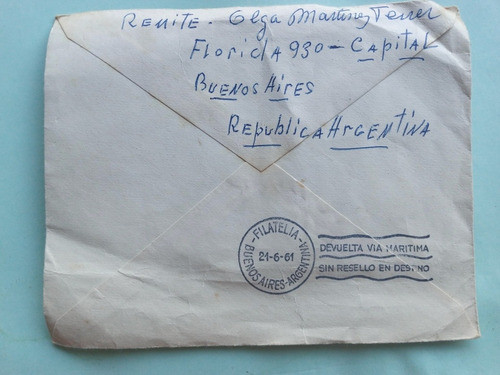 Remite. Olga Martinez Ferrer
Florida 930 - Capital
Buenos Aires
Republica Argentina
FILATELIA
21-6-61
BUENOS AIRES-ARGENTINA
DEVUELTA VIA MARITIMA
SIN RESELLO EN DESTINO